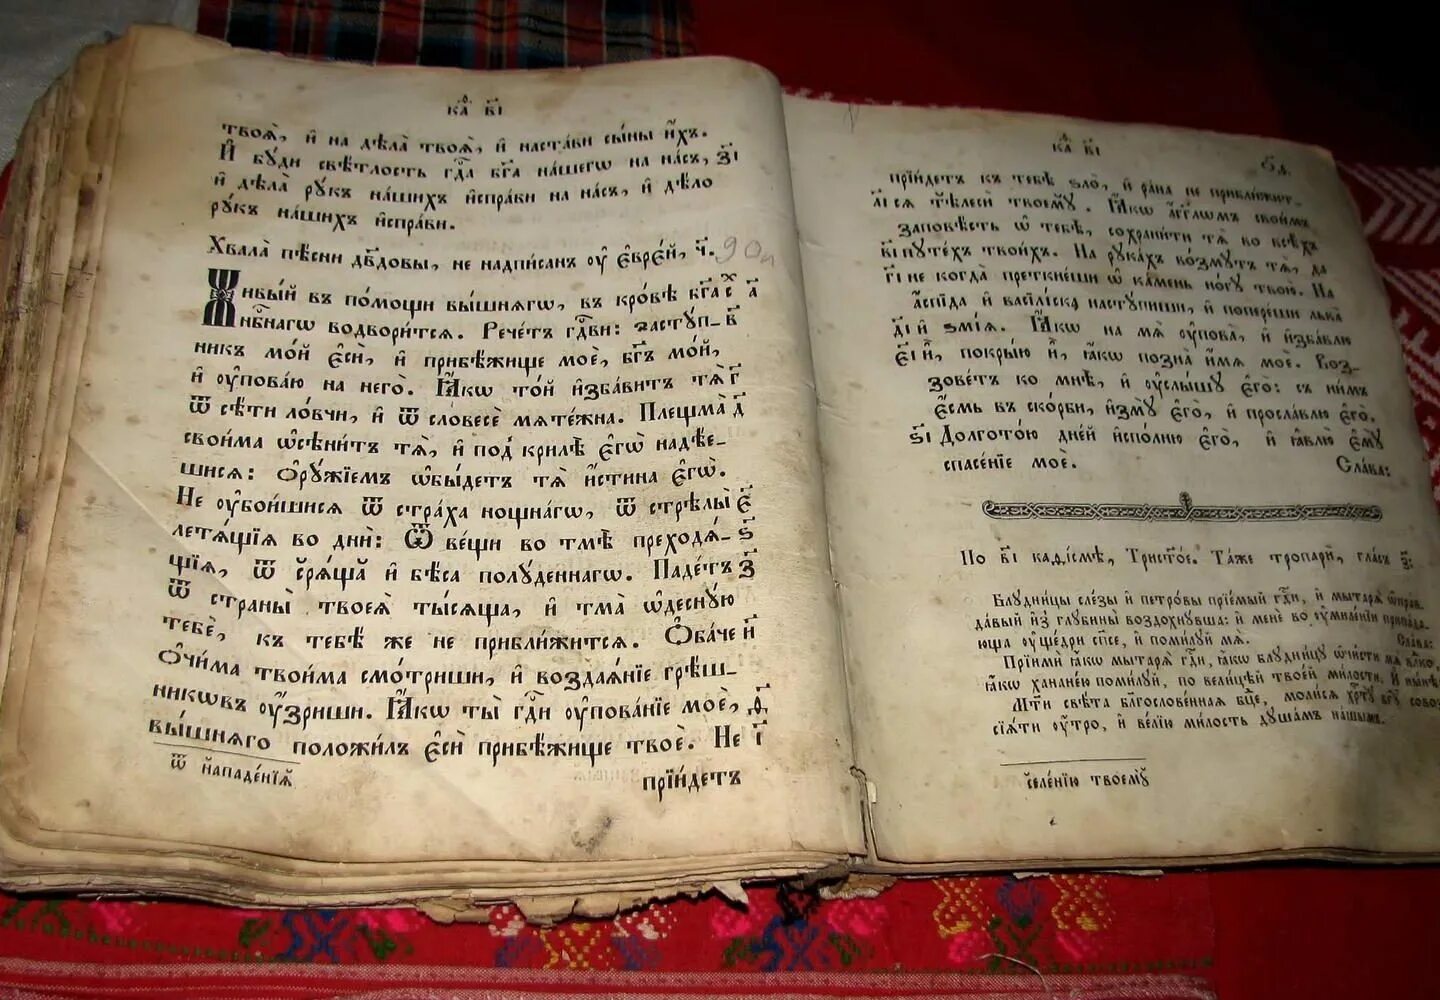 каѳ҃ в҃і
твоѧ̀, и҆ на дѣла̀ твоѧ̀, и҆ наста́ви сы́ны и҆́хъ.
И҆ бꙋ́ди свѣ́тлость гдⷭ҇а бг҃а на́шегѡ на на́съ, з҃і
и҆ дѣла̀ рꙋ́къ на́шихъ и҆спра́ви на на́съ, и҆ дѣ́ло
рꙋ́къ на́шихъ и҆спра́ви.
Хвала̀ пѣ́сни дв҃довы, не надпи́санъ ᲂу҆ є҆вре́й, ч҃. 90
Живы́й въ по́мощи вы́шнѧгѡ, въ кро́вѣ бг҃а а҃
нбⷭ҇нагѡ водвори́тсѧ. Рече́тъ гдⷭ҇ви: застꙋ́п- в҃
никъ мо́й є҆сѝ, и҆ прибѣ́жище моѐ, бг҃ъ мо́й,
и҆ ᲂу҆пова́ю на него̀. Ꙗ҆́кѡ то́й и҆зба́витъ тѧ̀ г҃
ѿ сѣ́ти ло́вчи, и҆ ѿ словесѐ мѧте́жна. Плещма̀ д҃
свои́ма ѡ҆сѣни́тъ тѧ̀, и҆ под̾ крилѣ̀ є҆гѡ̀ надѣ́е-
шисѧ: Ѻ҆рꙋ́жїемъ ѡ҆бы́детъ тѧ̀ и҆́стина є҆гѡ̀.
Не ᲂу҆бои́шисѧ ѿ стра́ха нощна́гѡ, ѿ стрѣлы̀ є҃
летѧ́щїѧ во днѝ: Ѿ ве́щи во тмѣ̀ преходѧ́- ѕ҃
щїѧ, ѿ срѧ́ща и҆ бѣ́са полꙋ́деннагѡ. Паде́тъ з҃
ѿ страны̀ твоеѧ̀ ты́сѧща, и҆ тма̀ ѡ҆деснꙋ́ю
тебѐ, къ тебѣ́ же не прибли́житсѧ. Ѻ҆ба́че и҃
ѻ҆чи́ма твои́ма смо́триши, и҆ воздаѧ́нїе грѣ́ш-
никѡвъ ᲂу҆́зриши. Ꙗ҆́кѡ ты̀ гдⷭ҇и ᲂу҆пова́нїе моѐ, ѳ҃
вы́шнѧго положи́лъ є҆сѝ прибѣ́жище твоѐ. Не і҃
ѿ нападе́нїѧ
прїи́детъ
каѳ҃ в҃і
прїи́детъ къ тебѣ̀ ѕло̀, и҆ ра́на не прибли́жит-
а҃і сѧ тѣлесѝ твоемꙋ̀. Ꙗ҆́кѡ а҆́гг҃лѡмъ свои́мъ
заповѣ́сть ѡ҆ тебѣ̀, сохрани́ти тѧ̀ во всѣ́хъ
в҃і пꙋте́хъ твои́хъ. На рꙋка́хъ во́змꙋтъ тѧ̀, да
г҃і не когда̀ преткне́ши ѡ҆ ка́мень но́гꙋ твою̀. На
а҆́спида и҆ васїли́ска настꙋ́пиши, и҆ попере́ши льва̀
д҃і и҆ ѕмі́ѧ. Ꙗ҆́кѡ на мѧ̀ ᲂу҆пова̀, и҆ и҆зба́влю
є҃і и҆̀, покры́ю и҆̀, ꙗ҆́кѡ позна̀ и҆́мѧ моѐ. Воз-
зове́тъ ко мнѣ̀, и҆ ᲂу҆слы́шꙋ є҆го̀: съ ни́мъ
є҆́смь въ ско́рби, и҆змꙋ̀ є҆го̀, и҆ просла́влю є҆го̀.
ѕ҃і Долгото́ю дне́й и҆спо́лню є҆го̀, и҆ ꙗ҆влю̀ є҆мꙋ̀
спасе́нїе моѐ. Сла́ва:
По в҃і кадї́смѣ, Трист҃о́е. Та́же тропарѝ, гла́съ з҃:
Блꙋдни́цы сле́зы и҆ петро́вы прїе́мый гдⷭ҇и, и҆ мытарѧ̀ ѡ҆прав
да́вый и҆з̾ глꙋбины̀ воздохнꙋ́вша: и҆ менѐ во ᲂу҆миле́нїи припа́да-
юща ᲂу҆ще́дри сп҃се, и҆ поми́лꙋй мѧ̀. Сла́ва:
Прїимѝ ꙗ҆́кѡ мытарѧ̀ гдⷭ҇и, ꙗ҆́кѡ блꙋдни́цꙋ ѡ҆чи́сти мѧ влⷣко,
ꙗ҆́кѡ ханане́ю поми́лꙋй, по вели́цѣй твое́й ми́лости. И҆ ны́нѣ
Мт҃и свѣ́та бл҃гослове́ннаѧ бц҃е, моли́сѧ хрⷭ҇тꙋ̀ бг҃ꙋ
сїѧ́ти ᲂу҆́тро, и҆ ве́лїю ми́лость дꙋша́мъ на́шымъ.
селе́нїю твоемꙋ̀